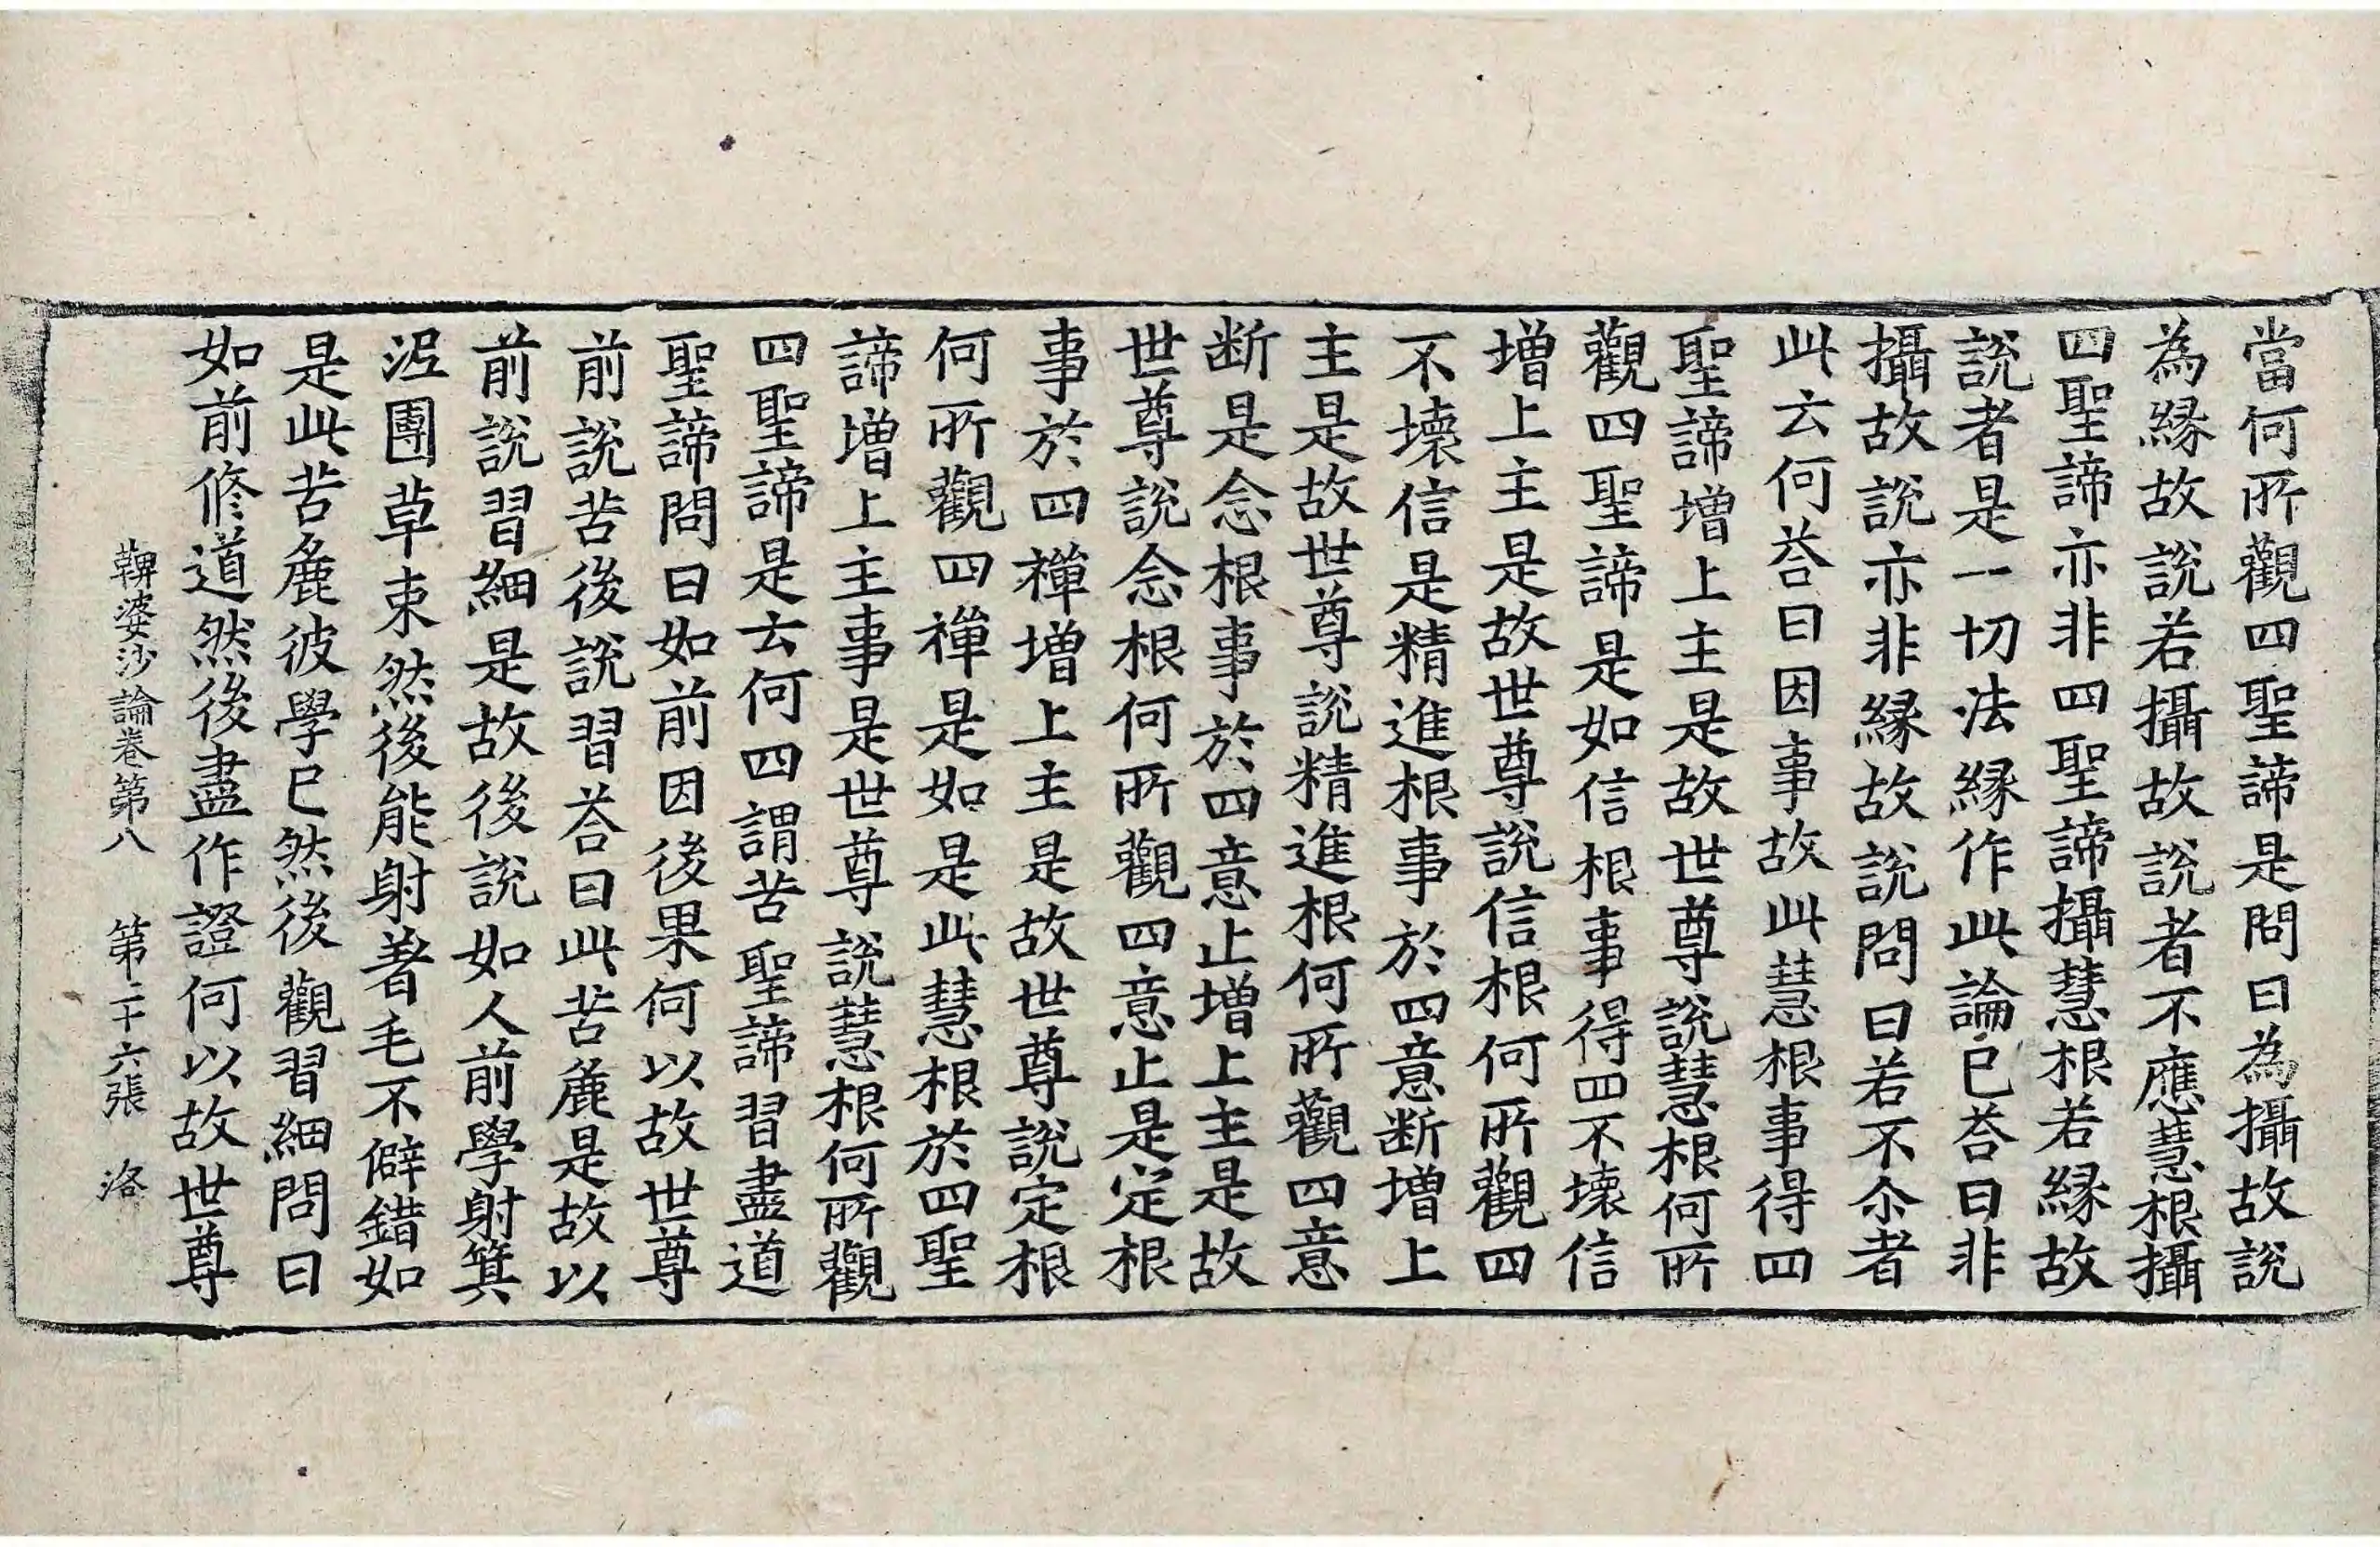 當何所觀四聖諦是問曰為攝故說
為緣故說若攝故說者不應慧根攝
四聖諦亦非四聖諦攝慧根若緣故
說者是一切法緣作此論已荅曰非
攝故說亦非緣故說問曰若不尒者
此云何荅曰因事故此慧根事得四
聖諦增上主是故世尊說慧根何所
觀四聖諦是如信根事得四不壞信
增上主是故世尊說信根何所觀四
不壞信是精進根事於四意断增上
主是故世尊說精進根何所觀四意
断是念根事於四意止增上主是故
世尊說念根何所觀四意止是定根
事於四禪增上主是故世尊說定根
何所觀四禪是如是此慧根於四聖
諦增上主事是世尊說慧根何所觀
四聖諦是云何四謂苦聖諦習盡道
聖諦問曰如前因後果何以故世尊
前說苦後說習荅曰此苦麁是故以
前說習細是故後說如人前學射箕
泥團草束然後能射著毛不僻錯如
是此苦麁彼學已然後觀習細問曰
如前修道然後盡作證何以故世尊
鞞婆沙論卷第八 第二十六張 洛